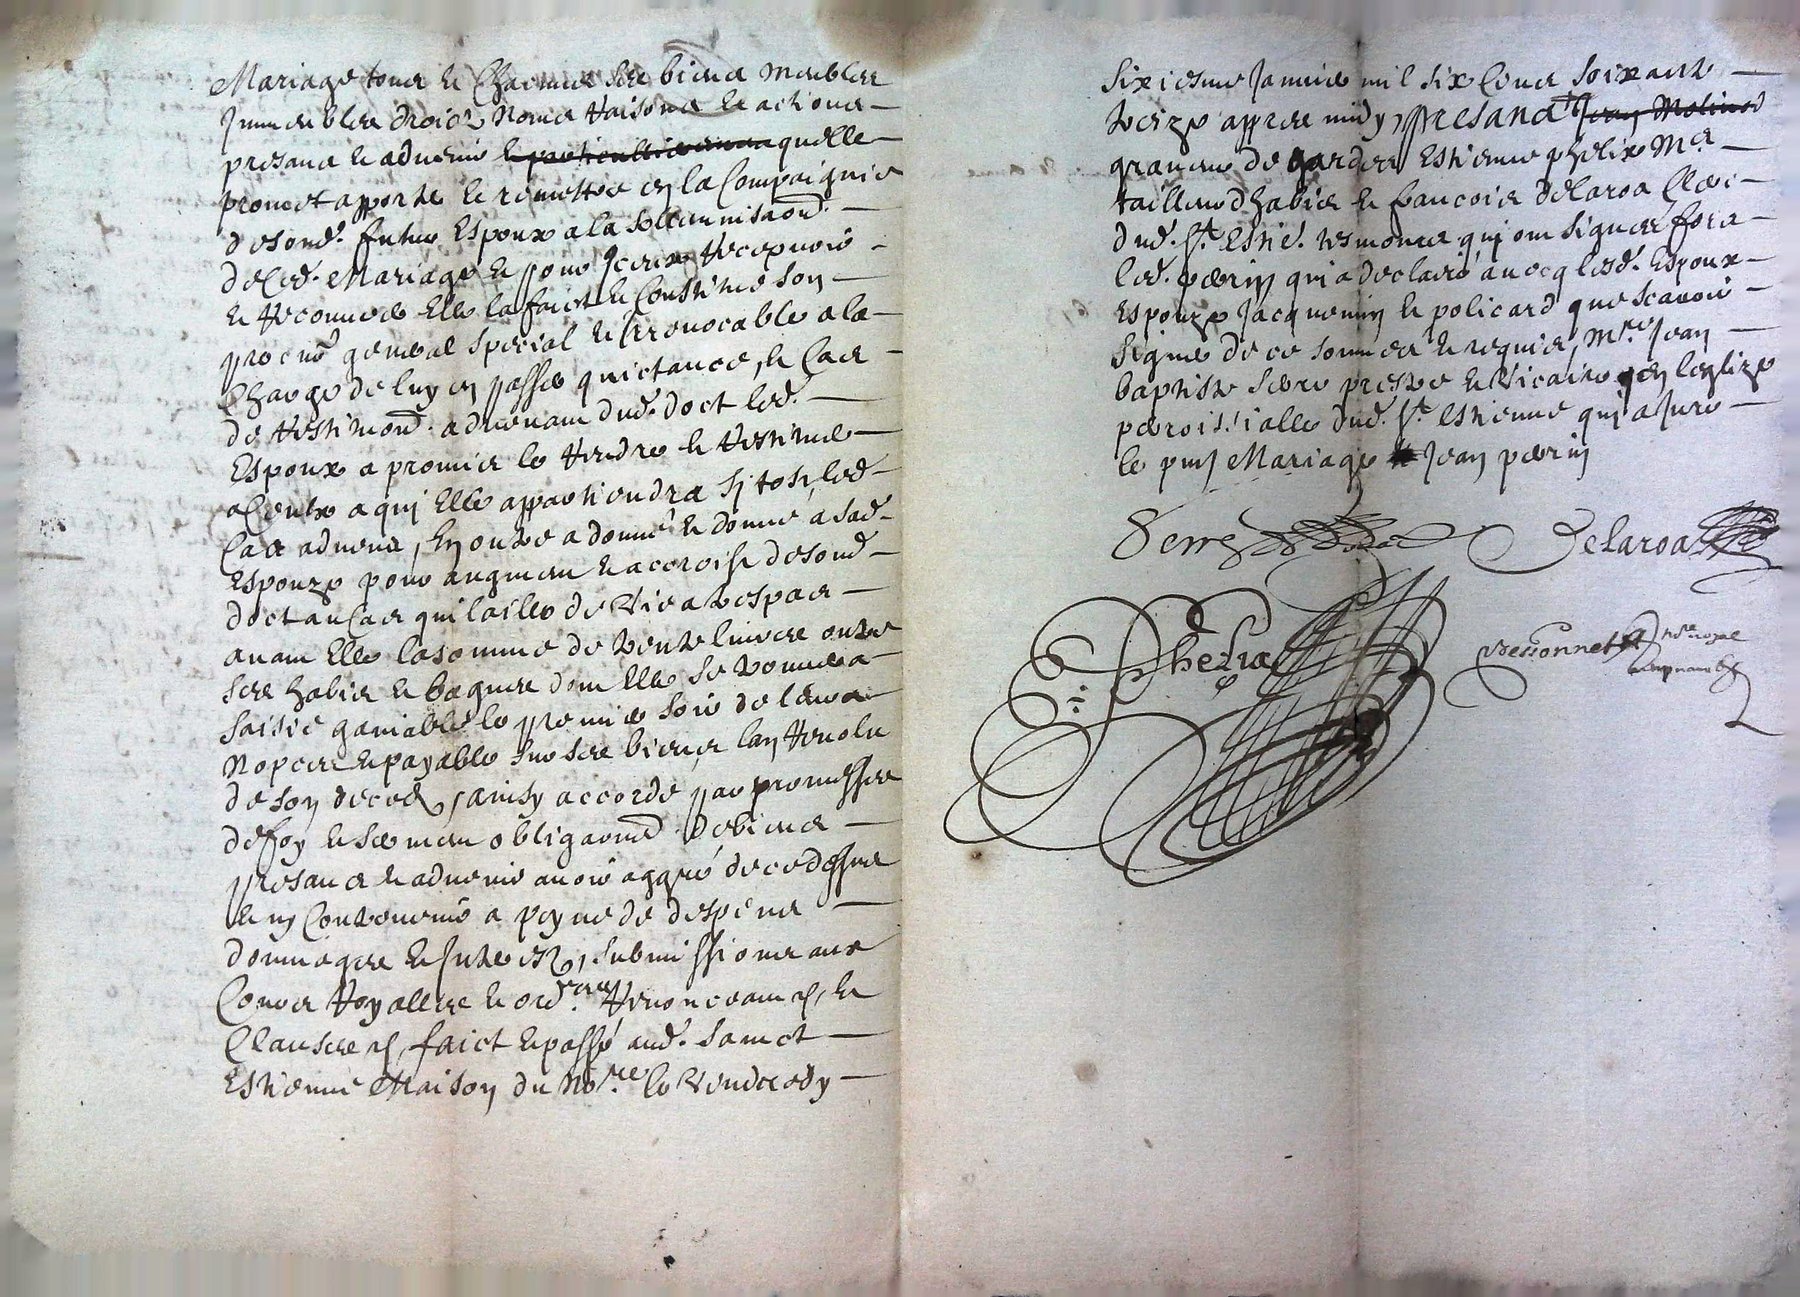 Mariage tous et Chacuns ses biens meubles
Immeubles droictz Noms Raisons et actions
presans et advenir et particullierement quelle
promet apporter et remettre en la Compaignie
de sond. futur Espoux a la sollemnisaon.
de Led. Mariage et pour Iceux Recepvoir
et Recouvrer Elle la faict et Constitue son
procur general special et Irrevocable a la
Charge de luy en passer quictance, et Cas
de Restituon. advenant dud. doct led.
Espoux a promis le Rendre et Restituer
a Ceulx a qui Elle appartiendra sy tost led
Cas advenu, En outre a donné et donne a sad
Espouze pour augment et acroist de sond
doct au Cas quil aille de vie a trespas
avant Elle la somme de trente livres outre
ses habis et bagues dont Elle se trouvera
saisie ganiable le premier soir de leurs
Nopces et payable sur ses biens lan Revolu
de son deced, ainsy accordé par promesses
de foy et serment obligaons de biens
presans et advenir avoir aggré ce dessus
et ny Contrevenir a peyne de despens
dommages et Interestz, submissions aux
Cours Royalles et ord.res Renonceans et
Clauses et faict et passé aud. Sainct
Estienne Maison du No.re le vendredy
sixiesme Janvier mil six Cens soixante
treize appres midy, presans Jean Molinod
graveur de gardes Estienne phelix M.e
tailleur dhabis et francois delaroa Clerc
dud. S.t Estie. tesmoins qui ont signés fors
led. perrin qui a declairé avecq lesd. Espoux
Espouze Jacquemin et policard que scavoir
signer de ce sommés et requis, M.re Jean
baptiste serre prestre et vicaire en leglize
perroissialle dud. S.t estienne qui a Juré
le pnt Mariage Jean perrin
Serre
Delaroa
Phelix
Bessonnet